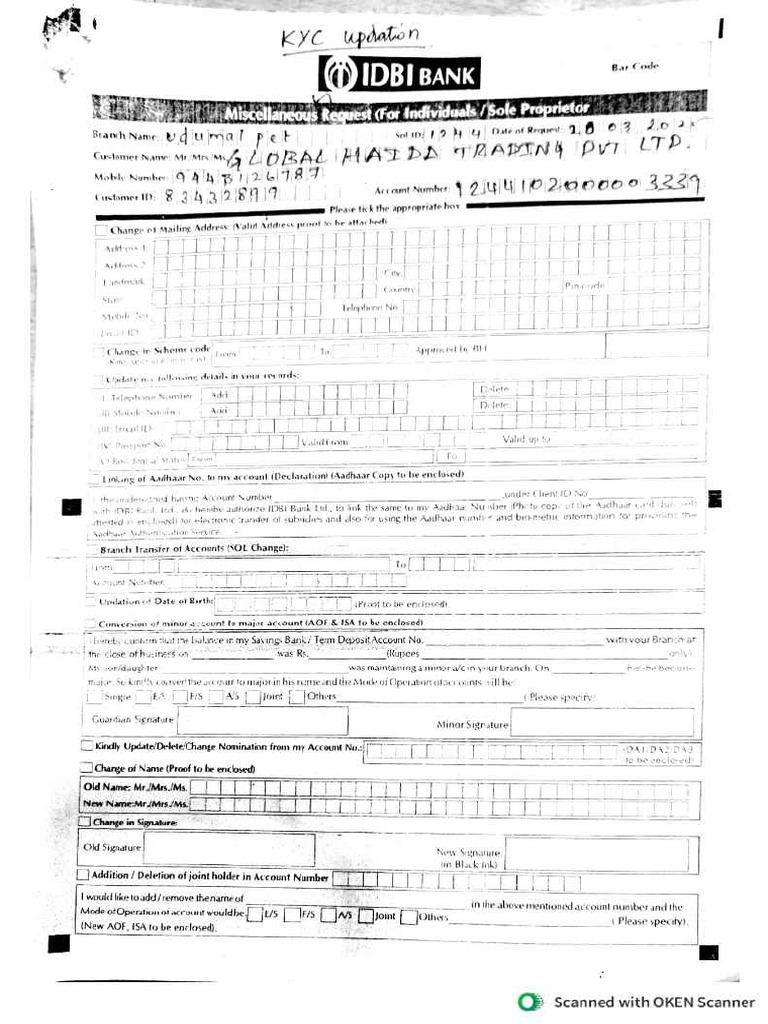 KYC updation
IDBI BANK
Bar Code
Miscellaneous Request (For Individuals / Sole Proprietor
Branch Name: Udumalpet Sol ID: 1244 Date of Request: 28 03 202
Customer Name: Mr./Mrs./Ms. GLOBAL TRADING PVT LTD.
Mobile Number: 9443126787
Customer ID: 83432899 Account Number: 1244102000003339
Please tick the appropriate box
Change of Mailing Address: (Valid Address proof to be attached)
Address 1
Address 2
Landmark City
State Country Pin code
Mobile No Telephone No
Email ID
Change in Scheme code From To Approved by BH
Update my following details in your records:
I. Telephone Number Add Delete
II) Mobile Number Add Delete:
III) Email ID
IV) Passport No. Valid From Valid up to
V) Residential Status From To
Linking of Aadhaar No. to my account (Declaration) (Aadhaar Copy to be enclosed)
I, the undersigned having Account Number under Client ID No
with IDBI Bank Ltd., do hereby authorize IDBI Bank Ltd., to link the same to my Aadhaar Number (Photo copy of the Aadhaar card duly self
attested is enclosed) for electronic transfer of subsidies and also for using the Aadhaar number and bio-metric information for providing the
Aadhaar Authentication Service.
Branch Transfer of Accounts (SOL Change):
From To
Account Number
Updation of Date of Birth: (Proof to be enclosed)
Conversion of minor account to major account (AOF & ISA to be enclosed)
I hereby confirm that the balance in my Savings Bank / Term Deposit Account No. with your Branch at
the close of business on was Rs. (Rupees only).
My son/daughter was maintaining a minor a/c in your branch. On he/she became
major. So kindly convert the account to major in his name and the Mode of Operation of accounts will be:
Single E/S F/S A/S Joint Others ( Please specify)
Guardian Signature Minor Signature
Kindly Update/Delete/Change Nomination from my Account No.: (DA1/DA2/DA3
to be enclosed)
Change of Name (Proof to be enclosed)
Old Name: Mr./Mrs./Ms.
New Name:Mr./Mrs./Ms.
Change in Signature:
Old Signature New Signature
(in Black Ink)
Addition / Deletion of joint holder in Account Number
I would like to add / remove the name of in the above mentioned account number and the
Mode of Operation of account would be E/S F/S A/S Joint Others ( Please specify).
(New AOF, ISA to be enclosed).
Scanned with OKEN Scanner